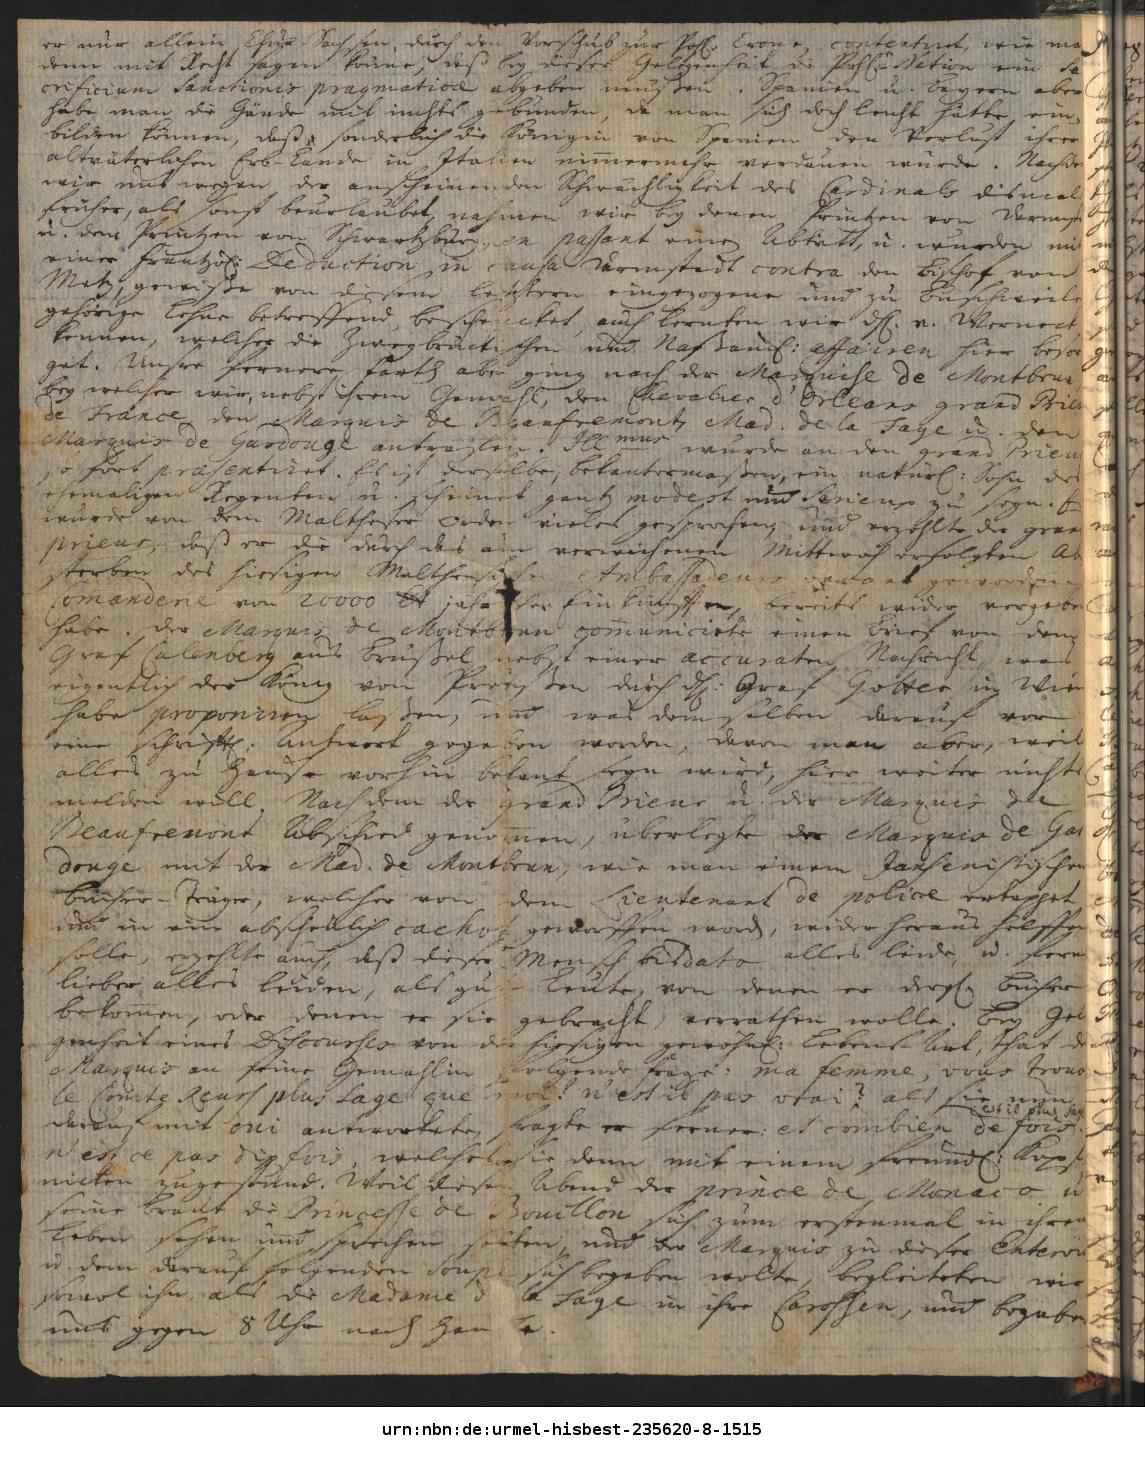 er nur allein Chur-Sachsen, durch den Vorschub zur Pohl. Crone, contentiret, wie ma
denn mit Recht sagen könne, daß bey dieser Gelegenheit die Pohl. Nation ein Sa
crificium Sanctionis pragmaticae abgeben müssen. Spanien u. Bayern aber
habe man die Hände mit nichts gebunden, da man sich doch leicht hätte ein-
bilden können, daß sonderlich die Königin von Spanien den Verlust ihrer
altväterlichen Erb-Lande in Italien nimmermehr verdauen würde. Nachde
wir uns wegen der anscheinenden Schwächligkeit des Cardinals dismal
früher, als sonst beurlaubet, nahmen wir bey denen Printzen von Darmst
u. dem Printzen von Schwartzburg, en passant einen Abtritt, u. wurden mit
einer Frantzös: Deduction in causa Darmstadt contra den Bischof von
Metz, gewisse von diesem letztern eingezogene und zu Buschweile
gehörige Lehne betreffend, beschencket, auch lernten wir H. v. Werneck
kennen, welcher die Zweybrückischen und Nassauis: affairen hier besor
get. Unsre fernere Farth aber ging nach der Marquise de Montbrun,
bey welcher wir, nebst ihrem Gemahl, den Chevalier d'Orleans grand Prieu
de France, den Marquis de Beaufremont, Mad. de la Faye u. den
Marquis de Gardouge antraffen. Illmus wurde an den grand Prieur
so fort praesentiret. Es ist derselbe, bekantermassen, ein natürl: Sohn des
ehemaligen Regenten u. scheinet gantz modest und serieux zu seyn. Es
wurde von dem Maltheser Orden vieles gesprochen, und erzehlte der gran
prieur, daß er die durch das am verwichenen Mittwoch erfolgten Ab
sterben des hiesigen Malthesischen Ambassadeurs vacant gewordene
Comanderie von 20000 jährlicher Einkünfften, bereits wider vergebe
habe. Der Marquis de Montbrun communicirte einen Brief von dem
Graf Calenberg aus Brüssel nebst einer accuraten Nachricht, was
eigentlich der König von Preussen durch H: Graf Gotter in Wien
habe proponiren lassen, und was demselben darauf vor
eine schriftl: Antwort gegeben worden, davon man aber, weil
alles zu Hause vorhin bekant seyn wird, hier weiter nichts
melden will. Nachdem der grand Prieur u. der Marquis de
Beaufremont Abschied genommen, überlegte der Marquis de Gar
douge mit der Mad. de Montbrun, wie man einem Jansenistischen
Bücher-Träger, welcher von dem Lieutenant de police ertappet
und in ein abscheulich cachot geworffen word, wider heraus helffen
solle, erzehlte auch, daß dieser Mensch bisdato alles leide, u. fern
lieber alles leiden, als gute Leute, von denen er dergl. Bücher
bekommen, oder denen er sie gebracht, verrathen wolle. Bey Gele
genheit eines Discourses von der hiesigen gewöhnl: Lebens-Art, that de
Marquis an seine Gemahlin folgende Frage: ma femme, vous trouv
le Comte Reuss plus sage que moi! n'est il pas vrai? als sie nun
est il plus sag
darauf mit oui antwortete, fragte er ferner: et combien de fois.
n'est ce pas dix fois, welches sie denn mit einem freundl: Kopf
nicken zugestund. Weil diesen Abend der prince de Monaco u
seine Braut die Princesse de Bouillon sich zum erstenmal in ihren
Leben sehen und sprechen sollten, und der Marquis zu dieser Entervu
u. dem darauf folgenden Soupe sich begeben wolte, begleiteten wir
sowol ihn, als die Madame d la Faye in ihre Carossen, und begaben
uns gegen 8 Uhr nach Hause.
urn:nbn:de:urmel-hisbest-235620-8-1515